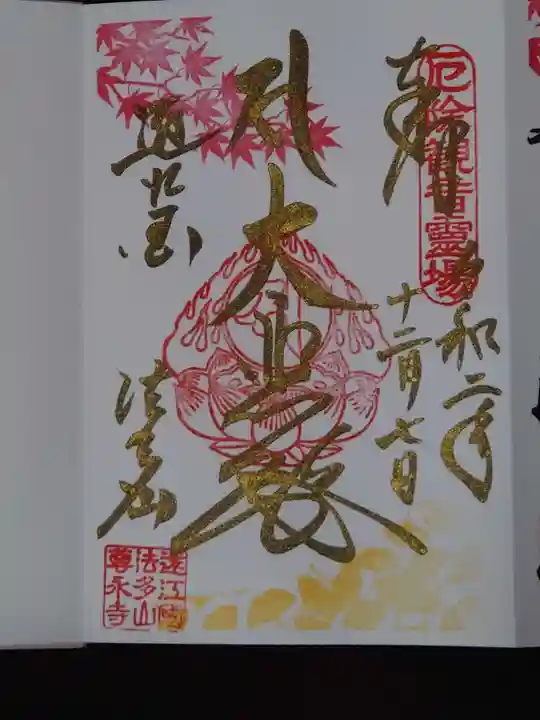 奉拝
厄除観音霊場
令和二年
十二月七日
大悲殿
遠江国
法多山
遠江國
法多山
尊永寺